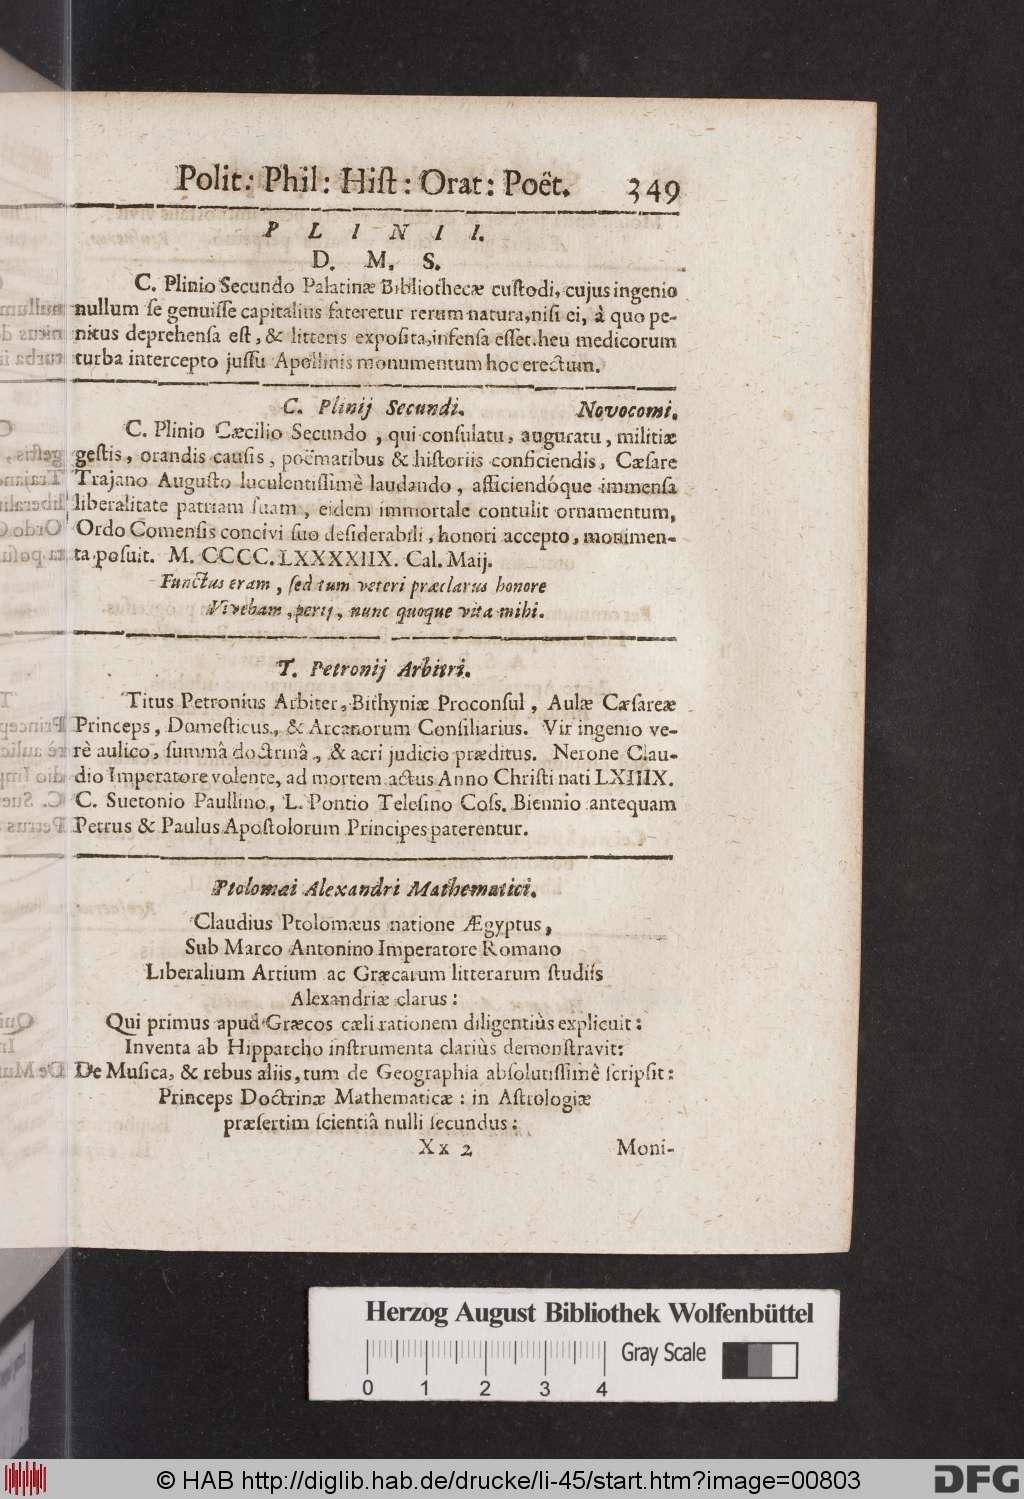 Polit.: Phil: Hiſt: Orat: Poët. 349
P L I N I I.
D. M. S.
C. Plinio Secundo Palatinæ Bibliothecæ cuſtodi, cujus ingenio
nullum ſe genuiſſe capitalius fateretur rerum natura, niſi ei, à quo pe-
nitus deprehenſa eſt, & litteris expoſita, infenſa eſſet. heu medicorum
turba intercepto juſſu Apollinis monumentum hoc erectum.
C. Plinij Secundi. Novocomi.
C. Plinio Cæcilio Secundo, qui conſulatu, auguratu, militiæ
geſtis, orandis cauſis, poëmatibus & hiſtoriis conficiendis, Cæſare
Trajano Auguſto luculentiſſimè laudando, afficiendóque immenſa
liberalitate patriam ſuam, eidem immortale contulit ornamentum,
Ordo Comenſis concivi ſuo deſiderabili, honori accepto, monimen-
ta poſuit. M. CCCC. LXXXXIIX. Cal. Maij.
Functus eram, ſed tum veteri præclarus honore
Vivebam, perij, nunc quoque vita mihi.
T. Petronij Arbitri.
Titus Petronius Arbiter, Bithyniæ Proconſul, Aulæ Cæſareæ
Princeps, Domeſticus, & Arcanorum Conſiliarius. Vir ingenio ve-
rè aulico, ſummâ doctrinâ, & acri judicio præditus. Nerone Clau-
dio Imperatore volente, ad mortem actus Anno Chriſti nati LXIIIX.
C. Suetonio Paullino, L. Pontio Teleſino Coſſ. Biennio antequam
Petrus & Paulus Apoſtolorum Principes paterentur.
Ptolomæi Alexandri Mathematici.
Claudius Ptolomæus natione Ægyptus,
Sub Marco Antonino Imperatore Romano
Liberalium Artium ac Græcarum litterarum ſtudiis
Alexandriæ clarus:
Qui primus apud Græcos cæli rationem diligentiùs explicuit:
Inventa ab Hipparcho inſtrumenta clariùs demonſtravit:
De Muſica, & rebus aliis, tum de Geographia abſolutiſſimè ſcripſit:
Princeps Doctrinæ Mathematicæ: in Aſtrologiæ
præſertim ſcientiâ nulli ſecundus:
Xx 2 Moni-
Herzog August Bibliothek Wolfenbüttel
Gray Scale
0 1 2 3 4
© HAB http://diglib.hab.de/drucke/li-45/start.htm?image=00803
DFG